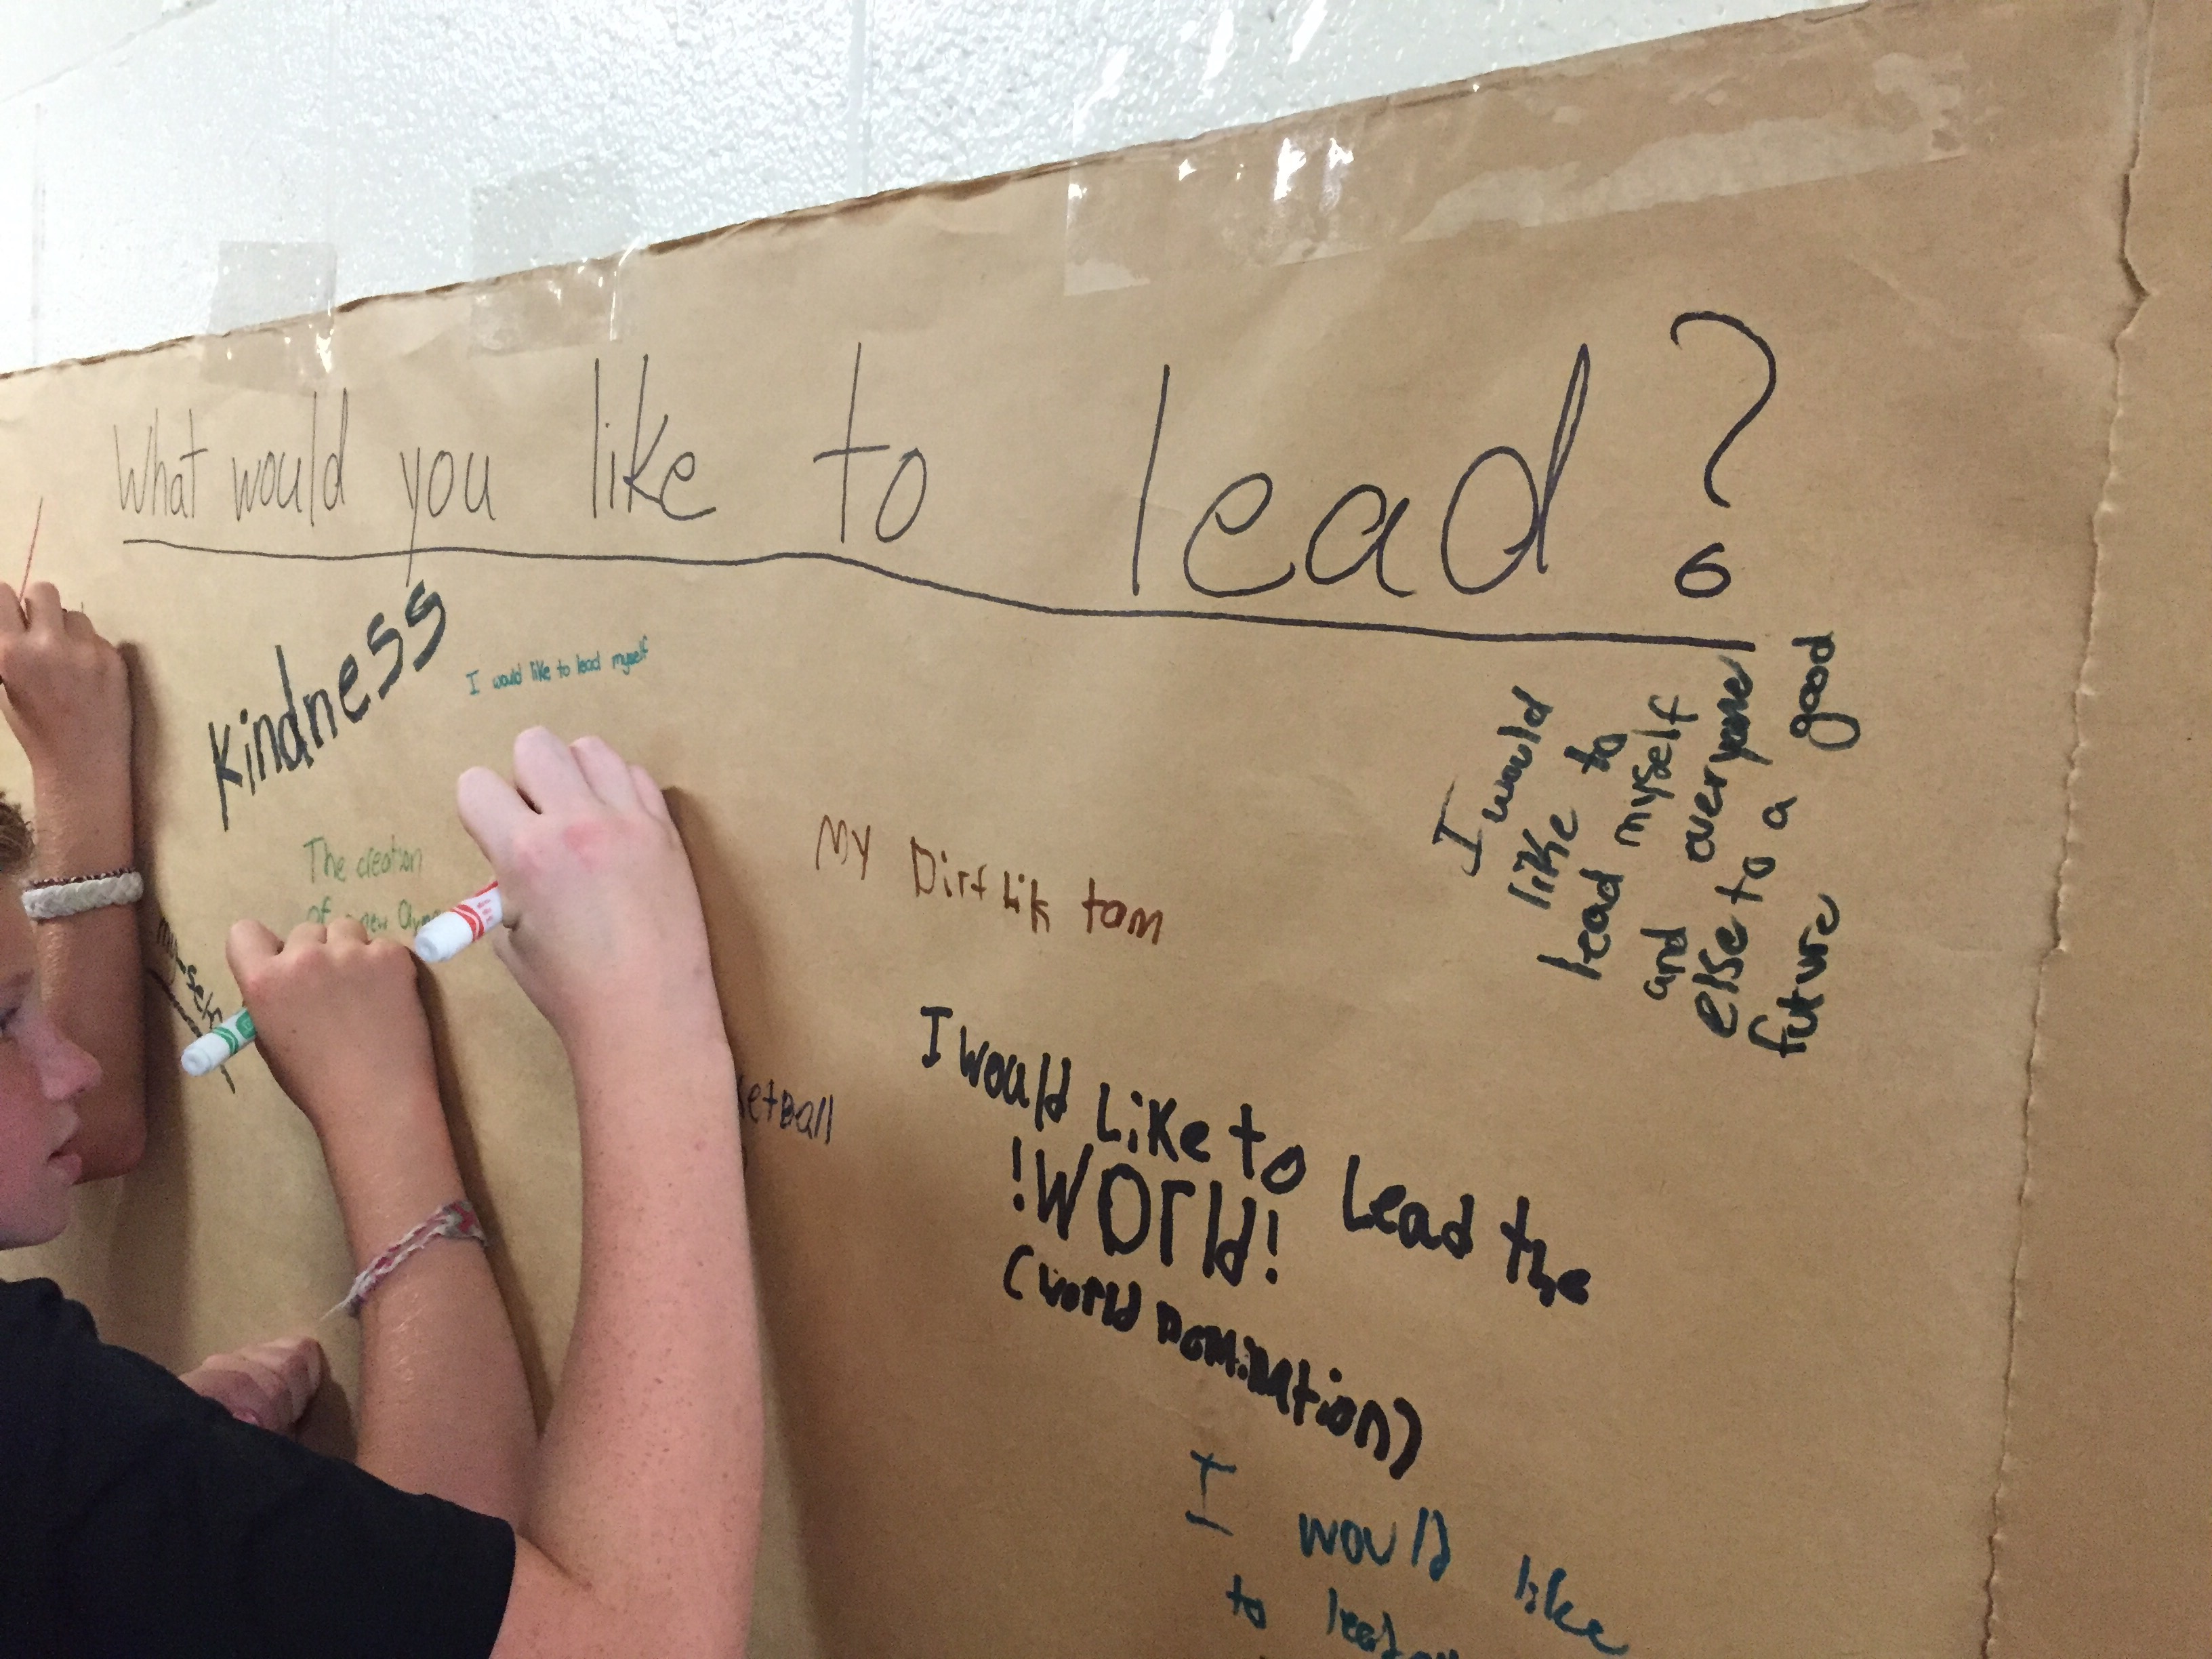 What would you like to lead?
Kindness
I would like to lead myself
The creation
of new
my-self
MY Dirt bik tam
etBall
I would
like to
lead myself
and everyone
else to a good
future
I would Like to Lead the
!WOrld!
(world Domination)
I would like
to lead